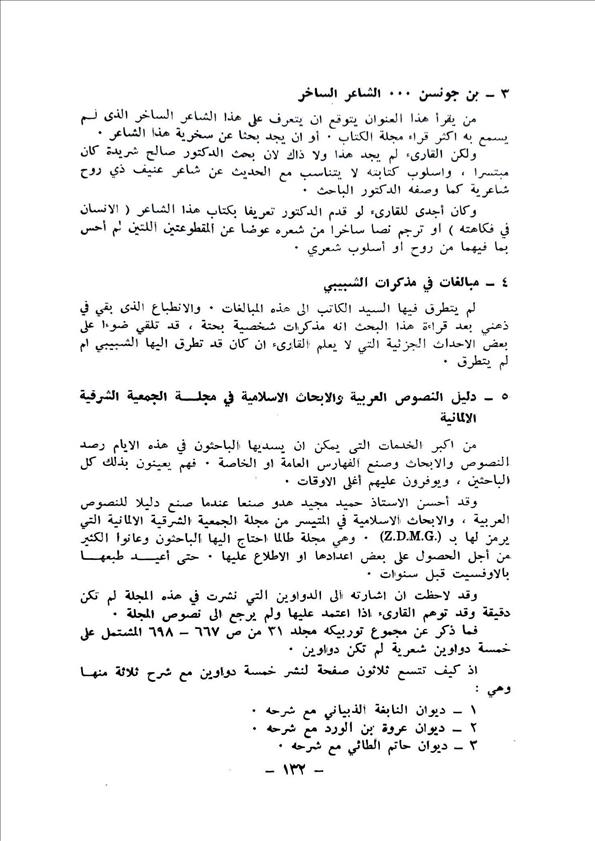 ٣ ــ بن جونسن ٠٠٠ الشاعر الساخر
من يقرأ هذا العنوان يتوقع ان يتعرف على هذا الشاعر الساخر الذى لم
يسمع به اكثر قراء مجلة الكتاب ٠ أو ان يجد بحثا عن سخرية هذا الشاعر ٠
ولكن القارىء لم يجد هذا ولا ذاك لان بحث الدكتور صالح شريدة كان
مبتسرا ، واسلوب كتابته لا يتناسب مع الحديث عن شاعر عنيف ذي روح
شاعرية كما وصفه الدكتور الباحث ٠
وكان أجدى للقارىء لو قدم الدكتور تعريفا بكتاب هذا الشاعر ( الانسان
في فكاهته ) او ترجم نصا ساخرا من شعره عوضا عن المقطوعتين اللتين لم أحس
بما فيهما من روح او أسلوب شعري ٠
٤ ــ مبالغات في مذكرات الشبيبي
لم يتطرق فيها السيد الكاتب الى هذه المبالغات ٠ والانطباع الذى بقي في
ذهني بعد قراءة هذا البحث انه مذكرات شخصية بحتة ، قد تلقي ضوءا على
بعض الاحداث الجزئية التي لا يعلم القارىء ان كان قد تطرق اليها الشبيبي ام
لم يتطرق ٠
٥ ــ دليل النصوص العربية والابحاث الاسلامية في مجلــة الجمعية الشرقية
الالمانية
من اكبر الخدمات التى يمكن ان يسديها الباحثون في هذه الايام رصد
النصوص والابحاث وصنع الفهارس العامة او الخاصة ٠ فهم يعينون بذلك كل
الباحثين ، ويوفرون عليهم أغلى الاوقات ٠
وقد أحسن الاستاذ حميد مجيد هدو صنعا عندما صنع دليلا للنصوص
العربية ، والابحاث الاسلامية في المتيسر من مجلة الجمعية الشرقية الالمانية التي
يرمز لها بـ (Z.D.M.G.) ٠ وهي مجلة طالما احتاج اليها الباحثون وعانوا الكثير
من أجل الحصول على بعض اعدادها او الاطلاع عليها ٠ حتى أعيــد طبعهــا
بالاوفسيت قبل سنوات ٠
وقد لاحظت ان اشارته الى الدواوين التي نشرت في هذه المجلة لم تكن
دقيقة وقد توهم القارىء اذا اعتمد عليها ولم يرجع الى نصوص المجلة ٠
فما ذكر عن مجموع توربيكه مجلد ٣١ من ص ٦٦٧ ــ ٦٩٨ المشتمل على
خمسة دواوين شعرية لم تكن دواوين ٠
اذ كيف تتسع ثلاثون صفحة لنشر خمسة دواوين مع شرح ثلاثة منهــا
وهي :
١ ــ ديوان النابغة الذبياني مع شرحه ٠
٢ ــ ديوان عروة بن الورد مع شرحه ٠
٣ ــ ديوان حاتم الطائي مع شرحه ٠
ــ ١٣٢ ــ